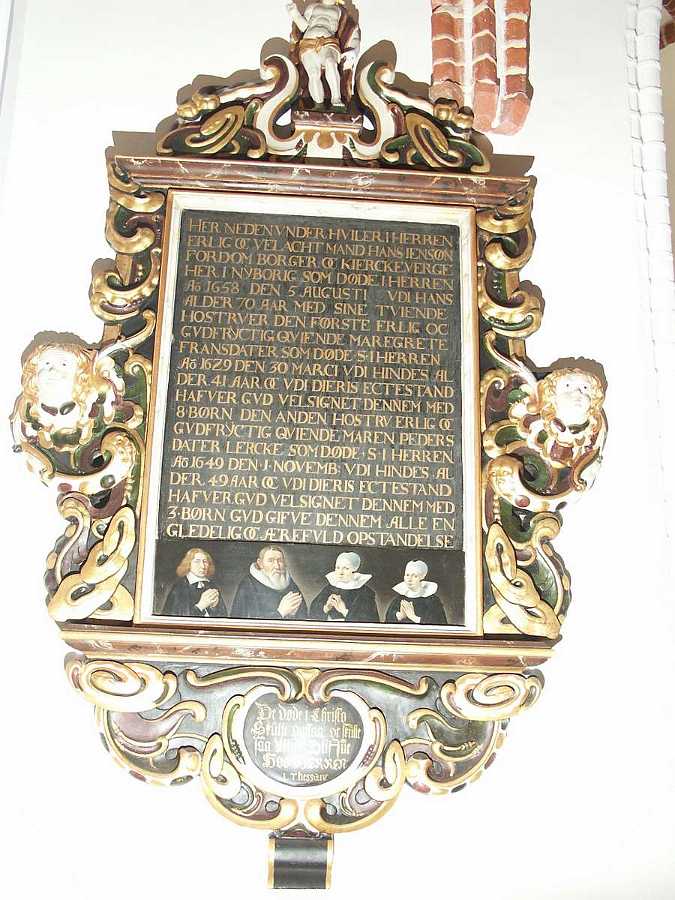 HER NEDEN VNDER HVILER I HERREN
ERLIG OC VELACHT MAND HANS IENSØN
FORDOM BORGER OC KIERCKEVERGE
HER I NYBORIG SOM DØDE I HERREN
Aō 1658 DEN 5 AUGUSTI VDI HANS
ALDER 70 AAR MED SINE TVIENDE
HOSTRVER DEN FØRSTE ERLIG OC
GVDFRYCTIG QVIENDE MAREGRETE
FRANSDATER SOM DØDE S·I HERREN
Aō 1629 DEN 30 MARCI VDI HINDES AL
DER 41 AAR OC VDI DIERIS ECTESTAND
HAFVER GVD VELSIGNET DENNEM MED
8·BØRN DEN ANDEN HOSTRV ERLIG OC
GVDFRYCTIG QVIENDE MAREN PEDERS
DATER LERCKE SOM DØDE·S·I HERREN
Aō 1649 DEN·1·NOVEMB·VDI HINDES AL
DER·49 AAR OC VDI DIERIS ECTESTAND
HAFVER GVD VELSIGNET DENNEM MED
3·BØRN GVD GIFVE DENNEM ALLE EN
GLEDELIG OC ÆREFVLD OPSTANDELSE
De døde i Christo
Skulle opstaa oc skulle
saa
HERREN
1 Thess 4